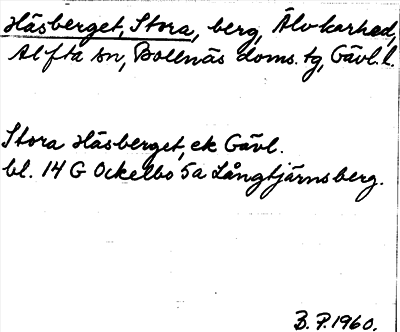 Häsberget, Stora, berg, Älvkarhed,
Alfta sn, Bollnäs doms. tg, Gävl. l.
Stora Häsberget, ek Gävl.
bl. 14 G Ockelbo 5a Långtjärnsberg.
B. P. 1960.